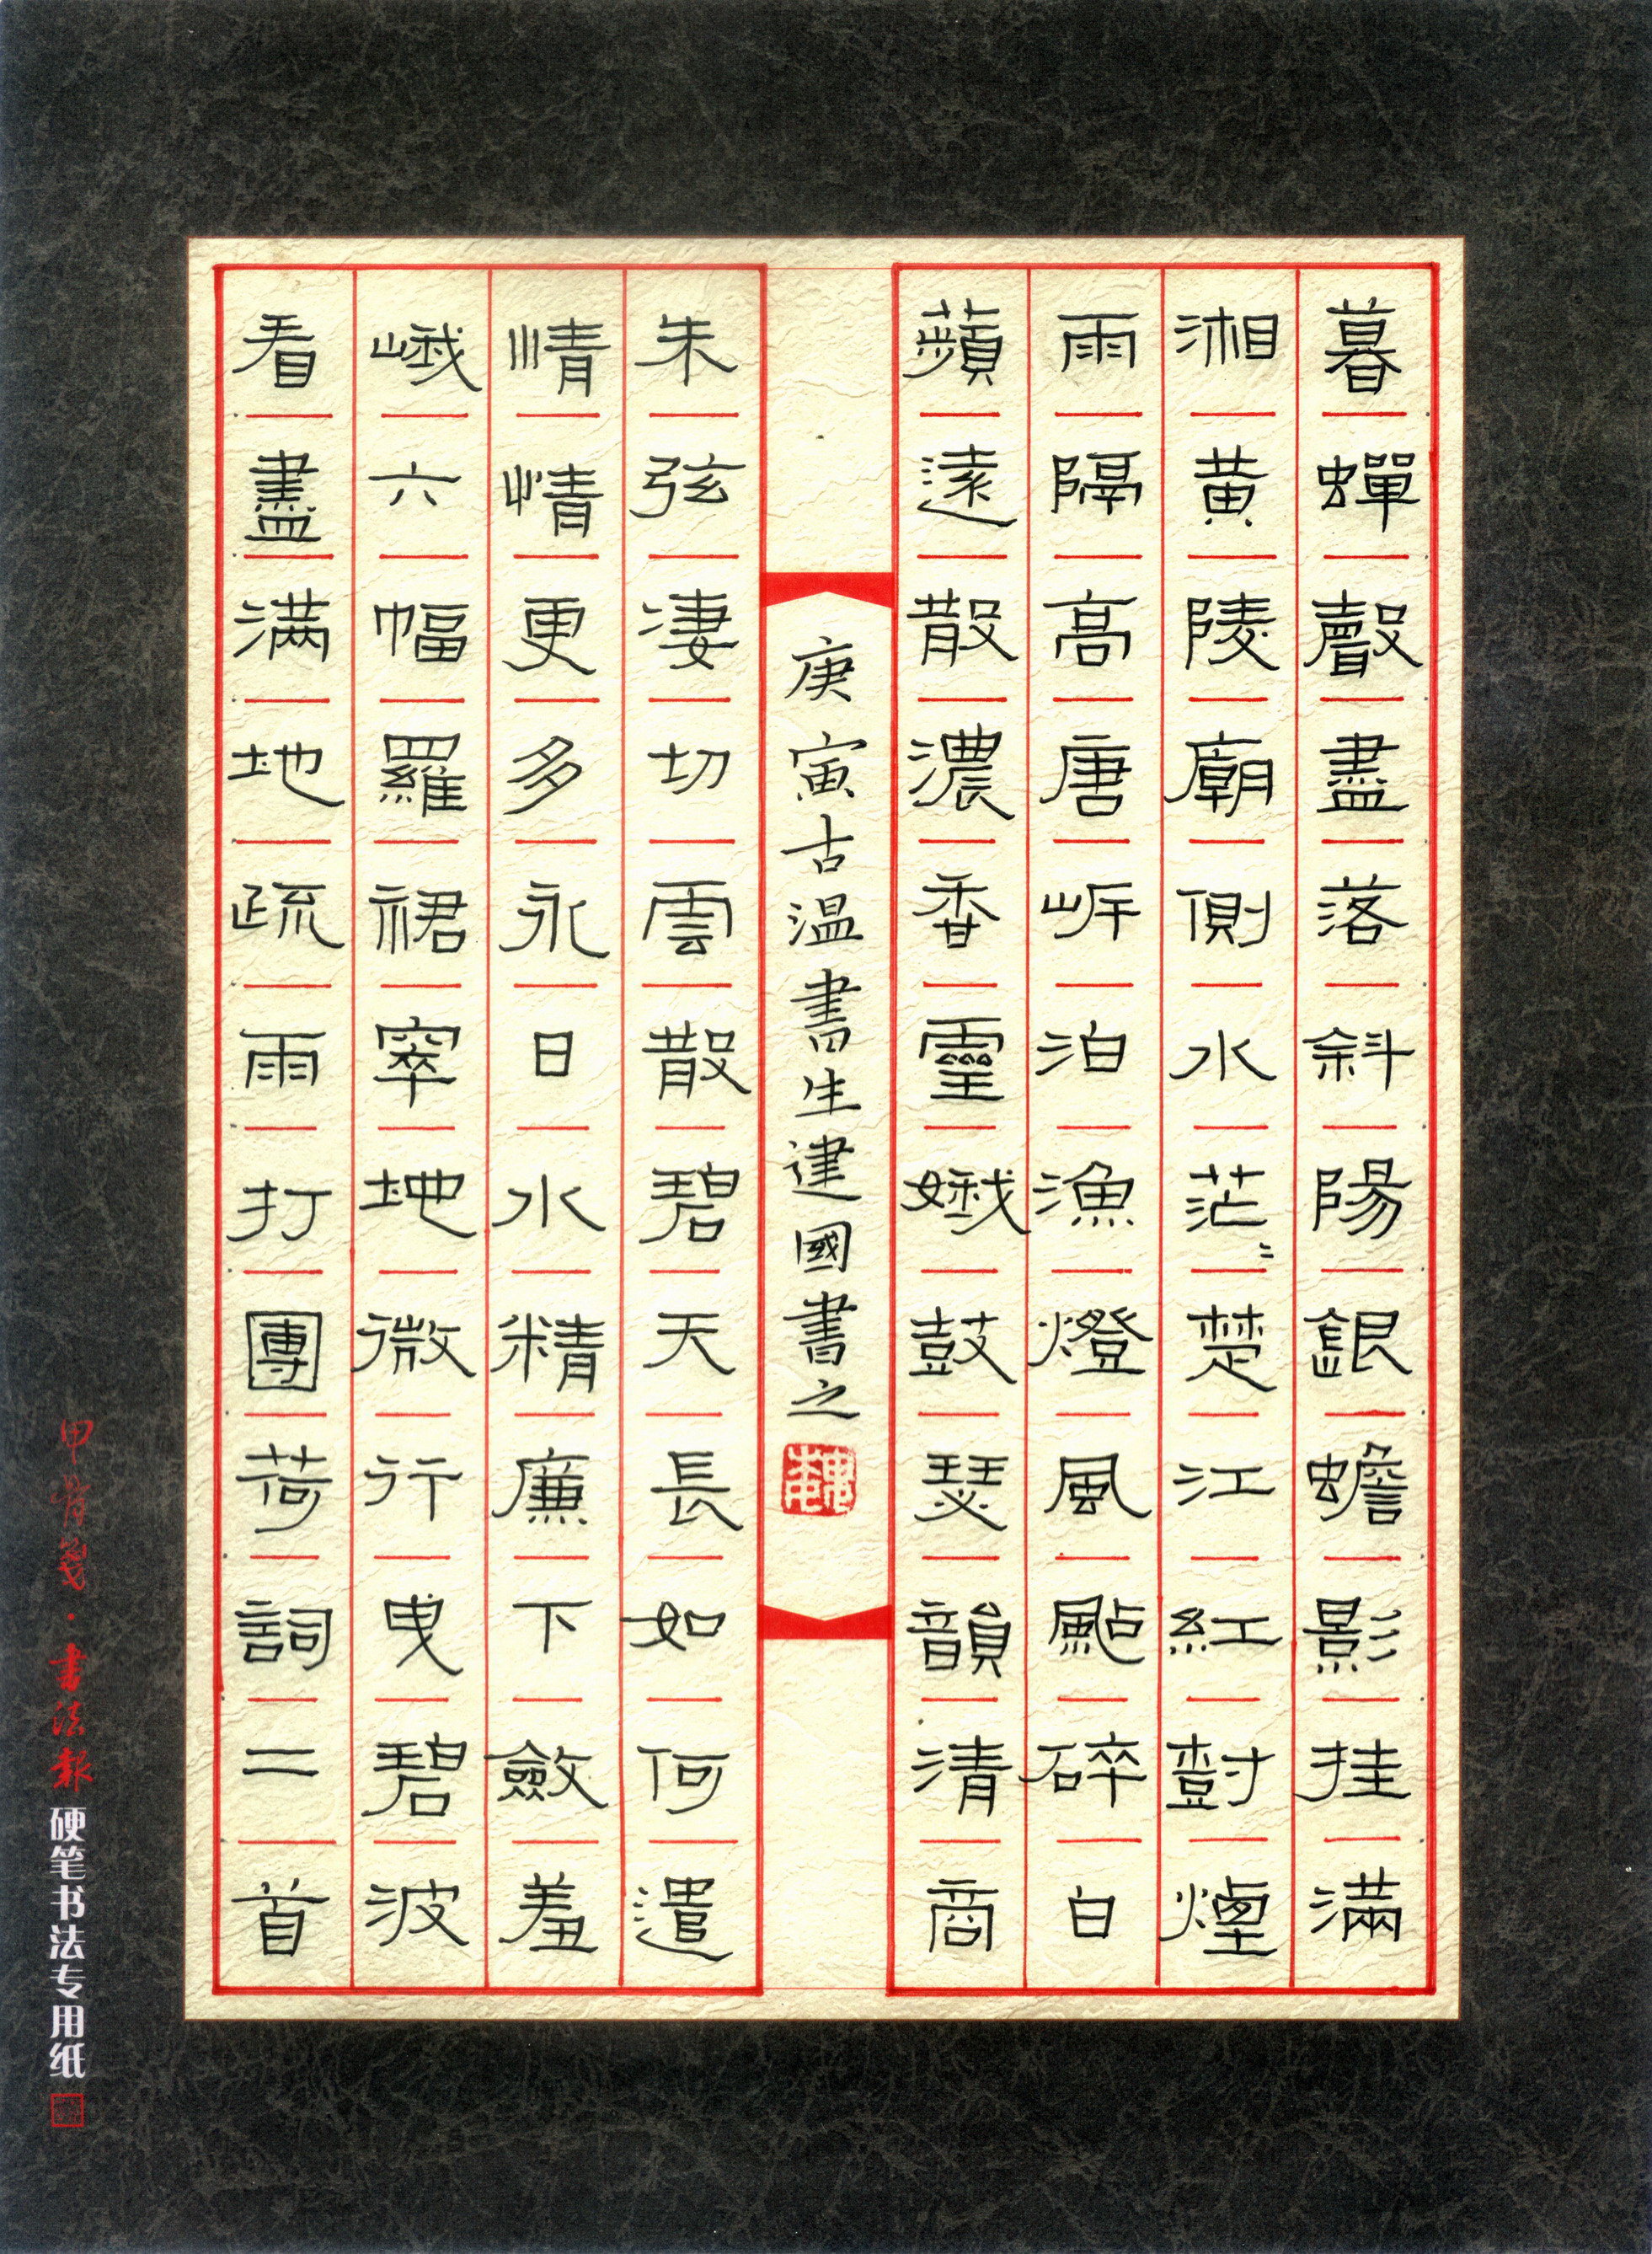 暮蟬聲盡落斜陽銀蟾影挂滿
湘黄陵廟側水茫〻楚江紅樹煙
雨隔高唐岸泊漁燈風颭碎白
蘋遠散濃香靈娥鼓瑟韻清商
朱弦凄切雲散碧天長如何遣
情情更多永日水精廉下斂羞
峨六幅羅裙窣地微行曳碧波
看盡滿地疏雨打團荷詞二首
庚寅古温書生建國書之
甲骨箋·書法報硬笔书法专用纸